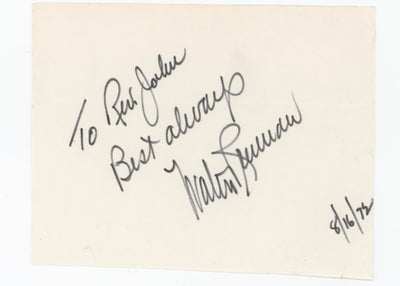 To Rev. John
Best always
8/16/72